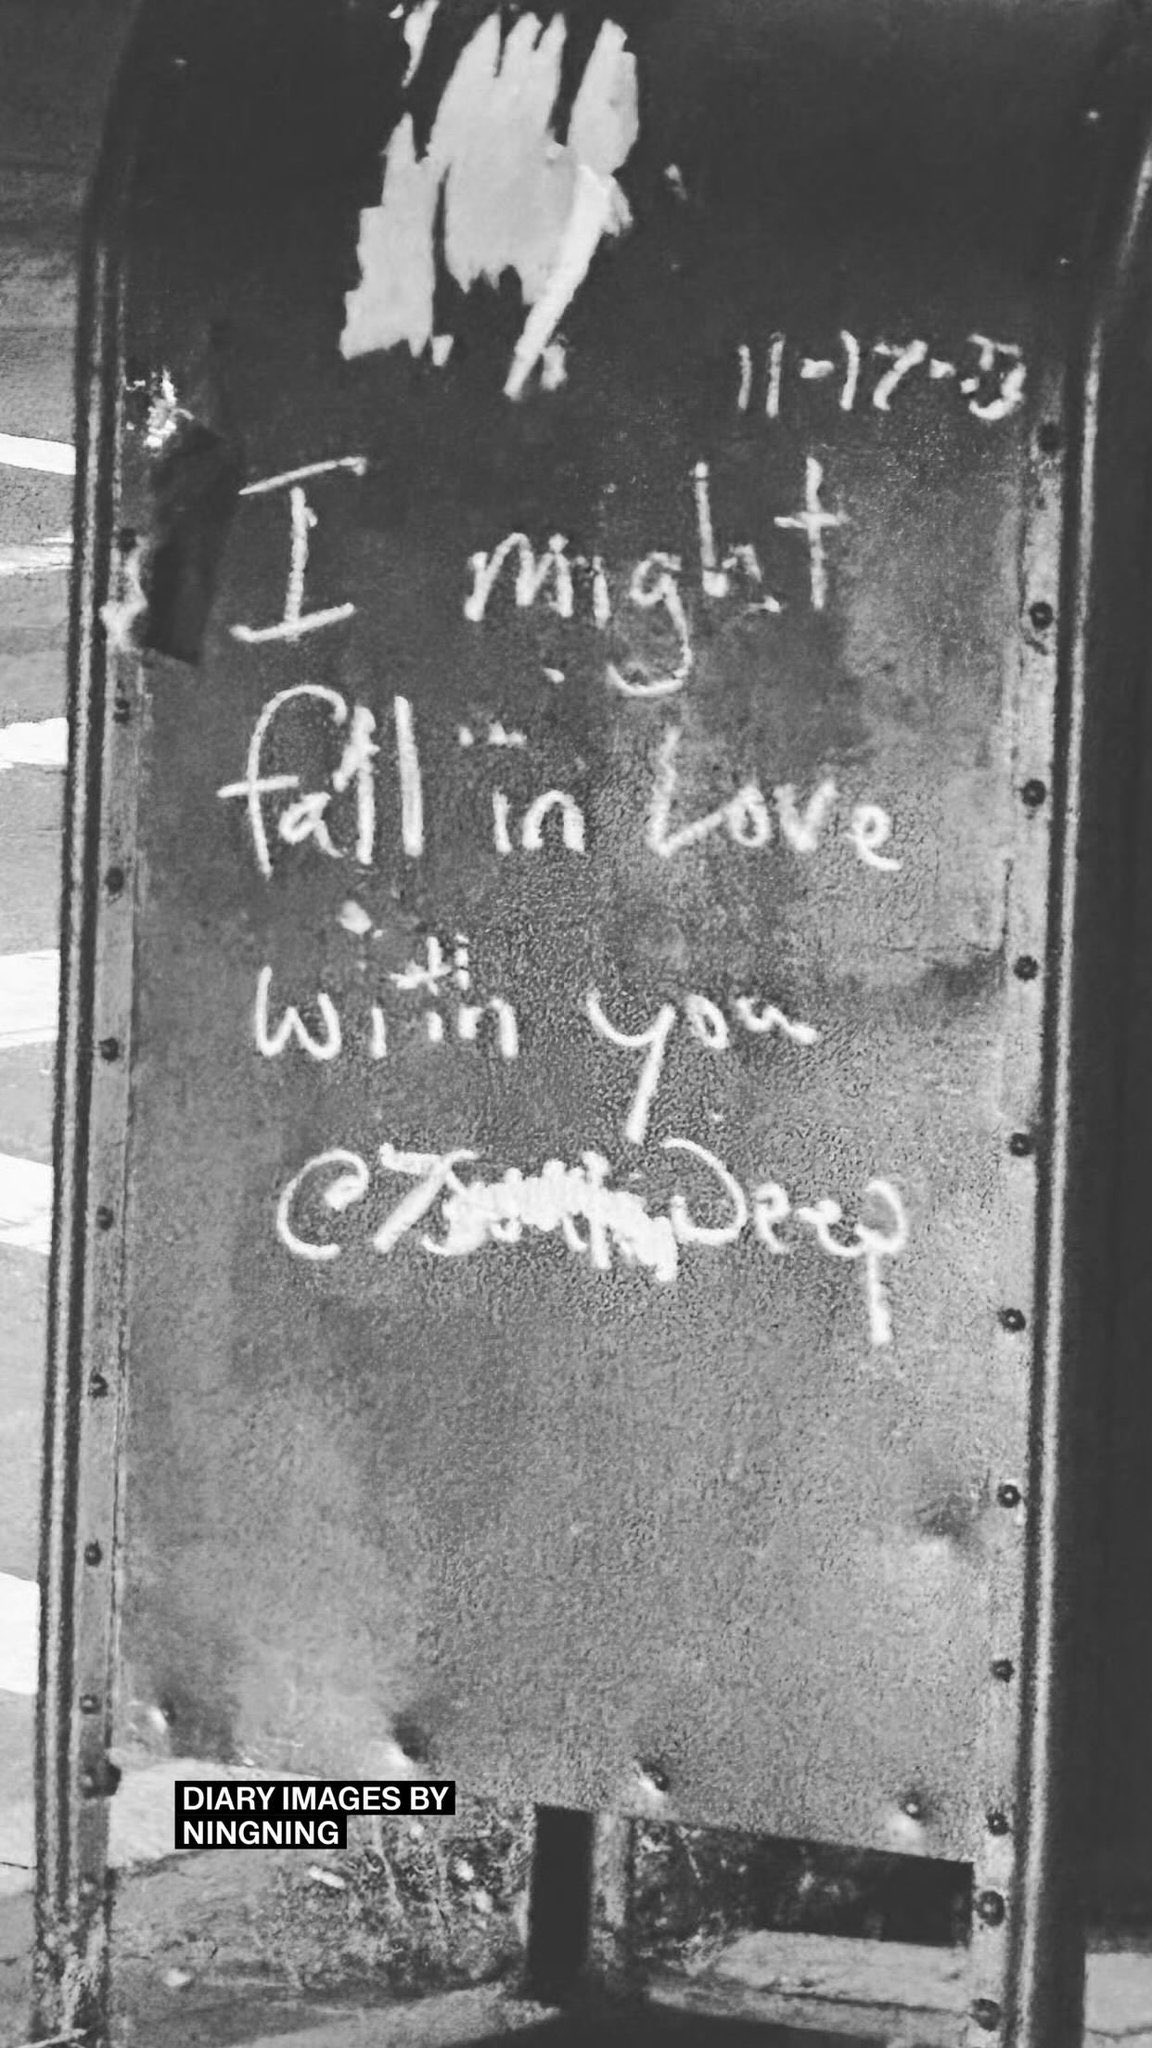 11-17-
I might
fall in Love
with you
Deep
DIARY IMAGES BY
NINGNING